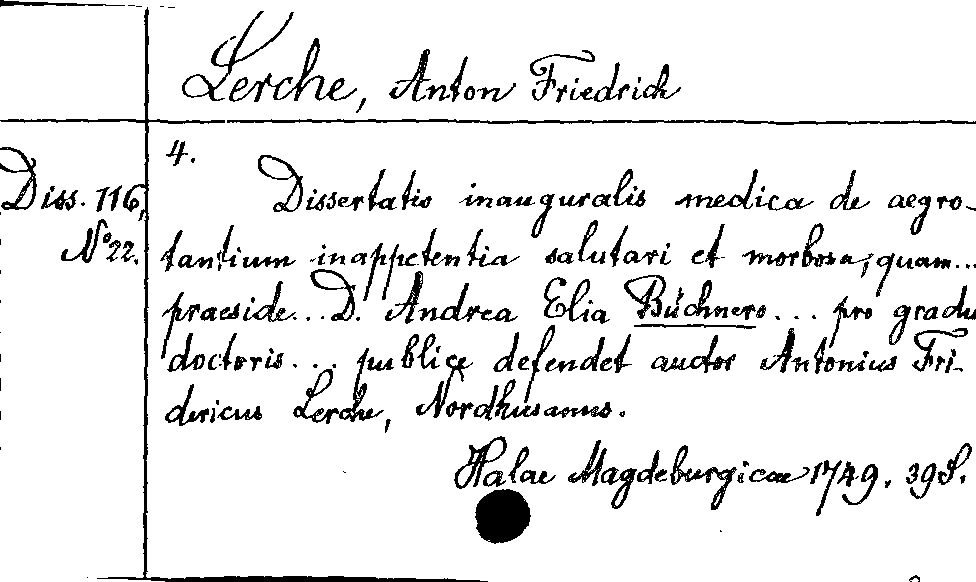 Lerche, Anton Friedrich
4.
Diss. 116,
No 22.
Dissertatio inauguralis medica de aegro-
tantium inappetentia salutari et morbosa, quam...
praeside... D. Andrea Elia Büchnero... pro gradu
doctoris... publice defendet auctor Antonius Fri-
dericus Lerche, Nordhusanus.
Halae Magdeburgicae 1749. 39 S.